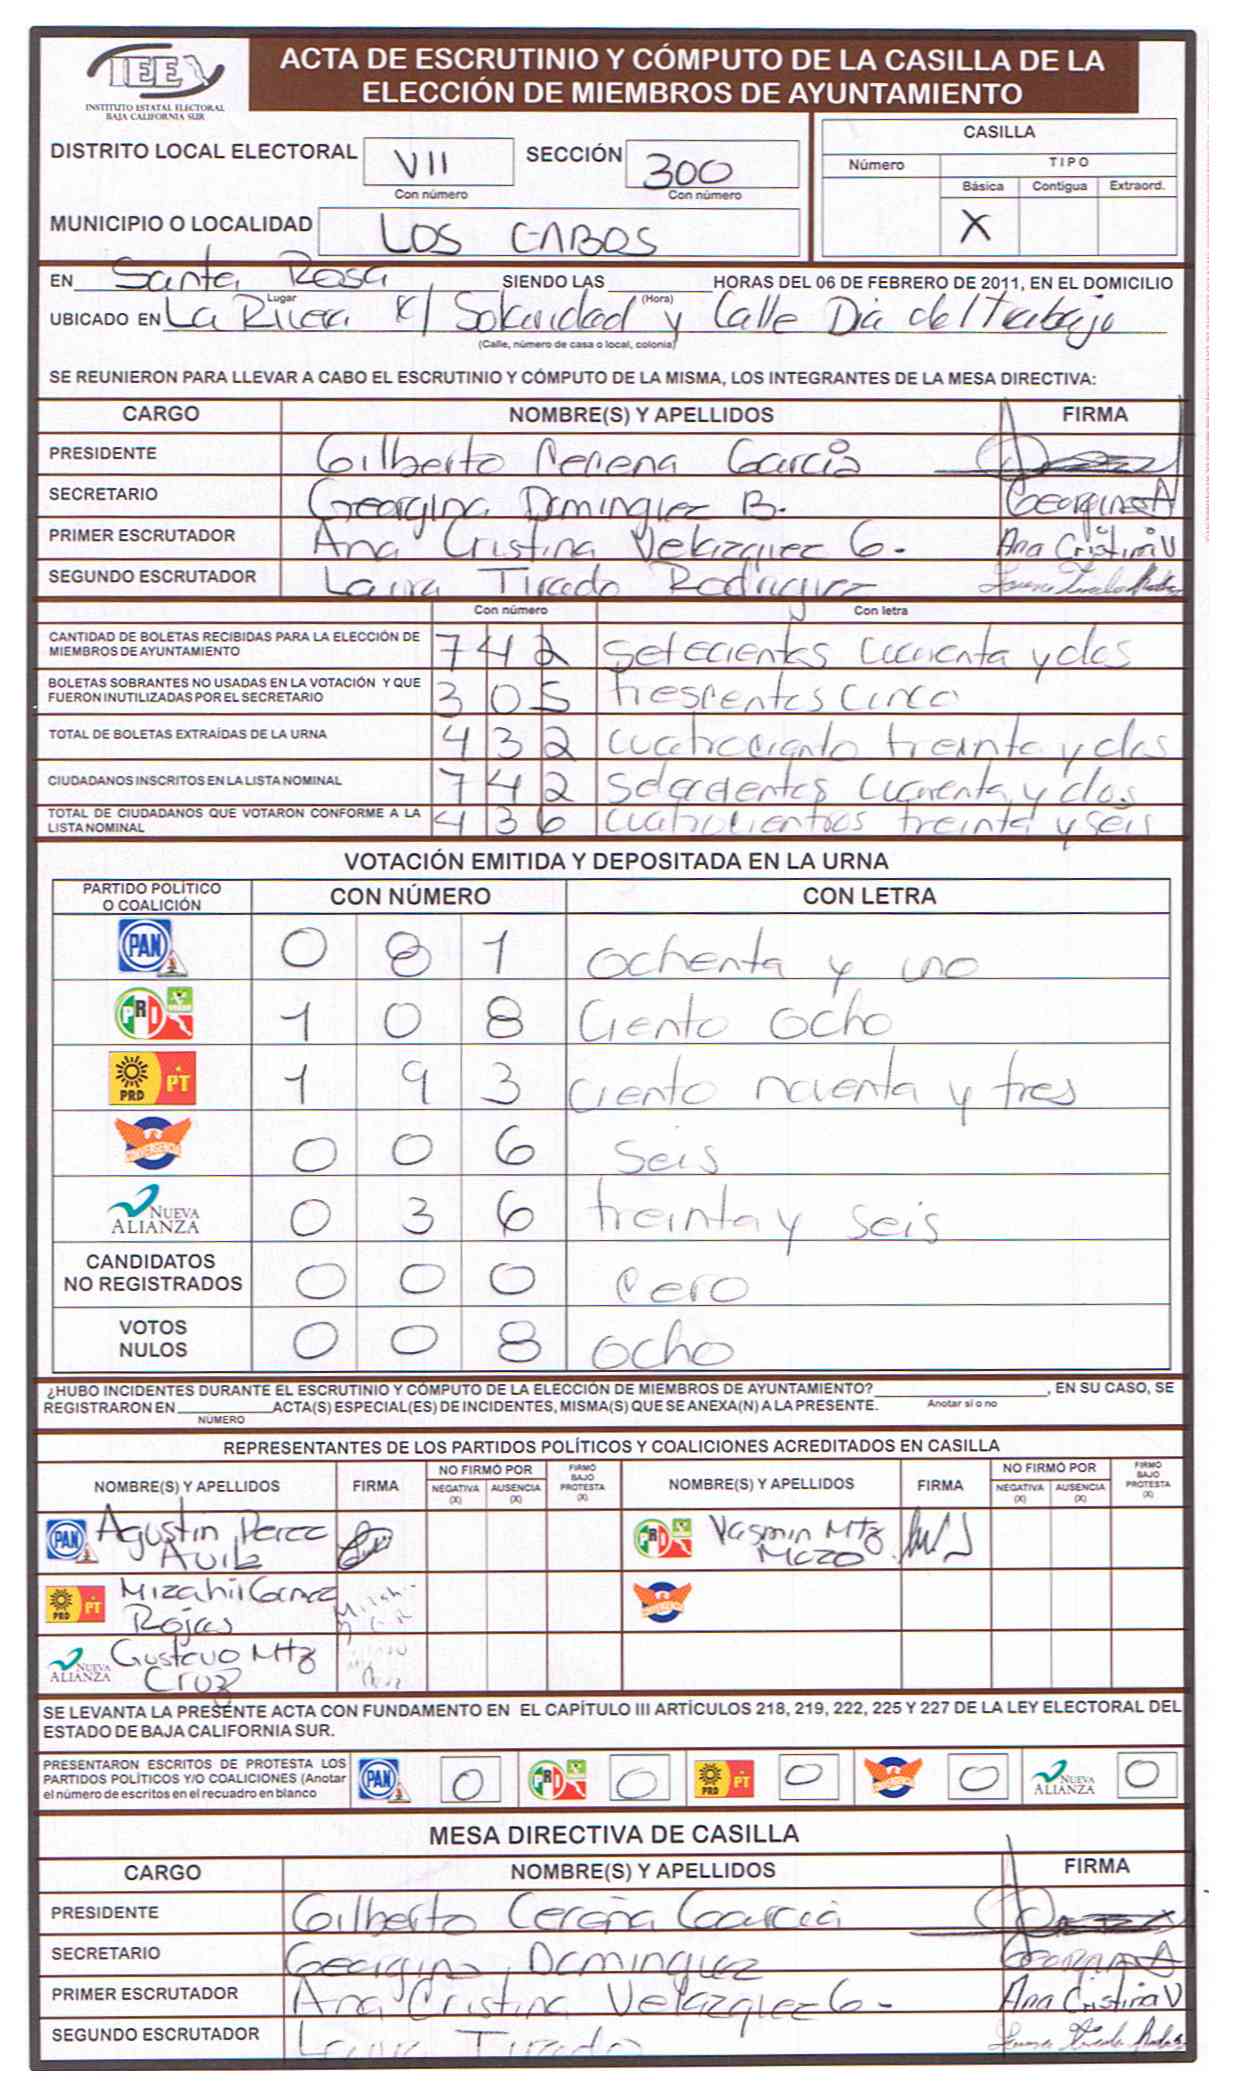 IEE
INSTITUTO ESTATAL ELECTORAL
BAJA CALIFORNIA SUR
ACTA DE ESCRUTINIO Y CÓMPUTO DE LA CASILLA DE LA
ELECCIÓN DE MIEMBROS DE AYUNTAMIENTO
DISTRITO LOCAL ELECTORAL VII SECCIÓN 300
Con número Con número
MUNICIPIO O LOCALIDAD LOS CABOS
CASILLA
Número TIPO
Básica Contigua Extraord.
X
EN Santa Rosa SIENDO LAS HORAS DEL 06 DE FEBRERO DE 2011, EN EL DOMICILIO
Lugar (Hora)
UBICADO EN La Rivera Solaridad y Calle Dia del Trabajo
(Calle, número de casa o local, colonia)
SE REUNIERON PARA LLEVAR A CABO EL ESCRUTINIO Y CÓMPUTO DE LA MISMA, LOS INTEGRANTES DE LA MESA DIRECTIVA:
CARGO NOMBRE(S) Y APELLIDOS FIRMA
PRESIDENTE Gilberto García
SECRETARIO Georgina Dominguez B. Georgina
PRIMER ESCRUTADOR Ana Cristina Velazquez G. Ana Cristina V
SEGUNDO ESCRUTADOR Laura Tirado Rodriguez
Con número Con letra
CANTIDAD DE BOLETAS RECIBIDAS PARA LA ELECCIÓN DE
MIEMBROS DE AYUNTAMIENTO 742 setecientos cuarenta y dos
BOLETAS SOBRANTES NO USADAS EN LA VOTACIÓN Y QUE
FUERON INUTILIZADAS POR EL SECRETARIO 305 trescientos cinco
TOTAL DE BOLETAS EXTRAÍDAS DE LA URNA 432 cuatrociento treinta y dos
CIUDADANOS INSCRITOS EN LA LISTA NOMINAL 742 setecientos cuarenta y dos
TOTAL DE CIUDADANOS QUE VOTARON CONFORME A LA
LISTA NOMINAL 436 cuatrocientos treinta y seis
VOTACIÓN EMITIDA Y DEPOSITADA EN LA URNA
PARTIDO POLÍTICO
O COALICIÓN CON NÚMERO CON LETRA
PAN 0 8 1 ochenta y uno
PRI 1 0 8 Ciento ocho
PRD PT 1 9 3 ciento noventa y tres
CONVERGENCIA 0 0 6 seis
NUEVA ALIANZA 0 3 6 treinta y seis
CANDIDATOS
NO REGISTRADOS 0 0 0 cero
VOTOS
NULOS 0 0 8 ocho
¿HUBO INCIDENTES DURANTE EL ESCRUTINIO Y CÓMPUTO DE LA ELECCIÓN DE MIEMBROS DE AYUNTAMIENTO? , EN SU CASO, SE
REGISTRARON EN ACTA(S) ESPECIAL(ES) DE INCIDENTES, MISMA(S) QUE SE ANEXA(N) A LA PRESENTE. Anotar sí o no
NÚMERO
REPRESENTANTES DE LOS PARTIDOS POLÍTICOS Y COALICIONES ACREDITADOS EN CASILLA
NOMBRE(S) Y APELLIDOS FIRMA NO FIRMÓ POR NEGATIVA (X) AUSENCIA (X) FIRMÓ BAJO PROTESTA (X) NOMBRE(S) Y APELLIDOS FIRMA NO FIRMÓ POR NEGATIVA (X) AUSENCIA (X) FIRMÓ BAJO PROTESTA (X)
PAN Agustin Perez PRI Yasmin Mtz
Avila Mozo
PRD PT Mizahil Gomez CONVERGENCIA
Rojas
NUEVA ALIANZA Gustavo Mtz
Cruz
SE LEVANTA LA PRESENTE ACTA CON FUNDAMENTO EN EL CAPÍTULO III ARTÍCULOS 218, 219, 222, 225 Y 227 DE LA LEY ELECTORAL DEL
ESTADO DE BAJA CALIFORNIA SUR.
PRESENTARON ESCRITOS DE PROTESTA LOS
PARTIDOS POLÍTICOS Y/O COALICIONES (Anotar
el número de escritos en el recuadro en blanco
PAN 0 PRI 0 PRD PT 0 CONVERGENCIA 0 NUEVA ALIANZA 0
MESA DIRECTIVA DE CASILLA
CARGO NOMBRE(S) Y APELLIDOS FIRMA
PRESIDENTE Gilberto Cereña Garcia
SECRETARIO Georgina Dominguez
PRIMER ESCRUTADOR Ana Cristina Velazquez G. Ana Cristina V
SEGUNDO ESCRUTADOR Laura Tirado